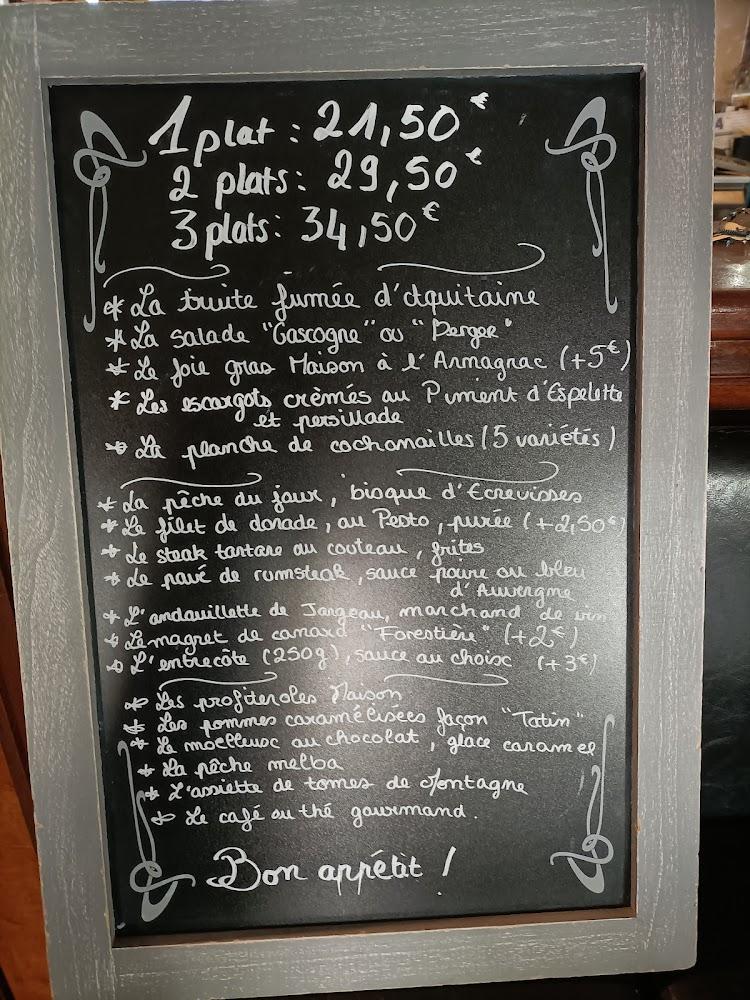 1 plat : 21,50 €
2 plats : 29,50 €
3 plats : 34,50 €
* La truite fumée d'Aquitaine
* La salade "Gascogne" ou "Berger"
* Le foie gras Maison à l'Armagnac (+5€)
* Les escargots crèmés au Piment d'Espelette
et persillade
* La planche de cochonailles (5 variétés)
* La pêche du jour, bisque d'Ecrevisses
* Le filet de dorade, au Pesto, purée (+2,50€)
* Le steak tartare au couteau, frites
* Le pavé de rumsteak, sauce poivre ou bleu
d'Auvergne
* L'andouillette de Jargeau, marchand de vin
* Le magret de canard "Forestière" (+2€)
* L'entrecôte (250g), sauce au choix (+3€)
* Les profiteroles Maison
* Les pommes caramélisées façon "Tatin"
* Le moelleux au chocolat, glace caramel
* La pêche melba
* L'assiette de tomes de Montagne
* Le café ou thé gourmand.
Bon appétit !